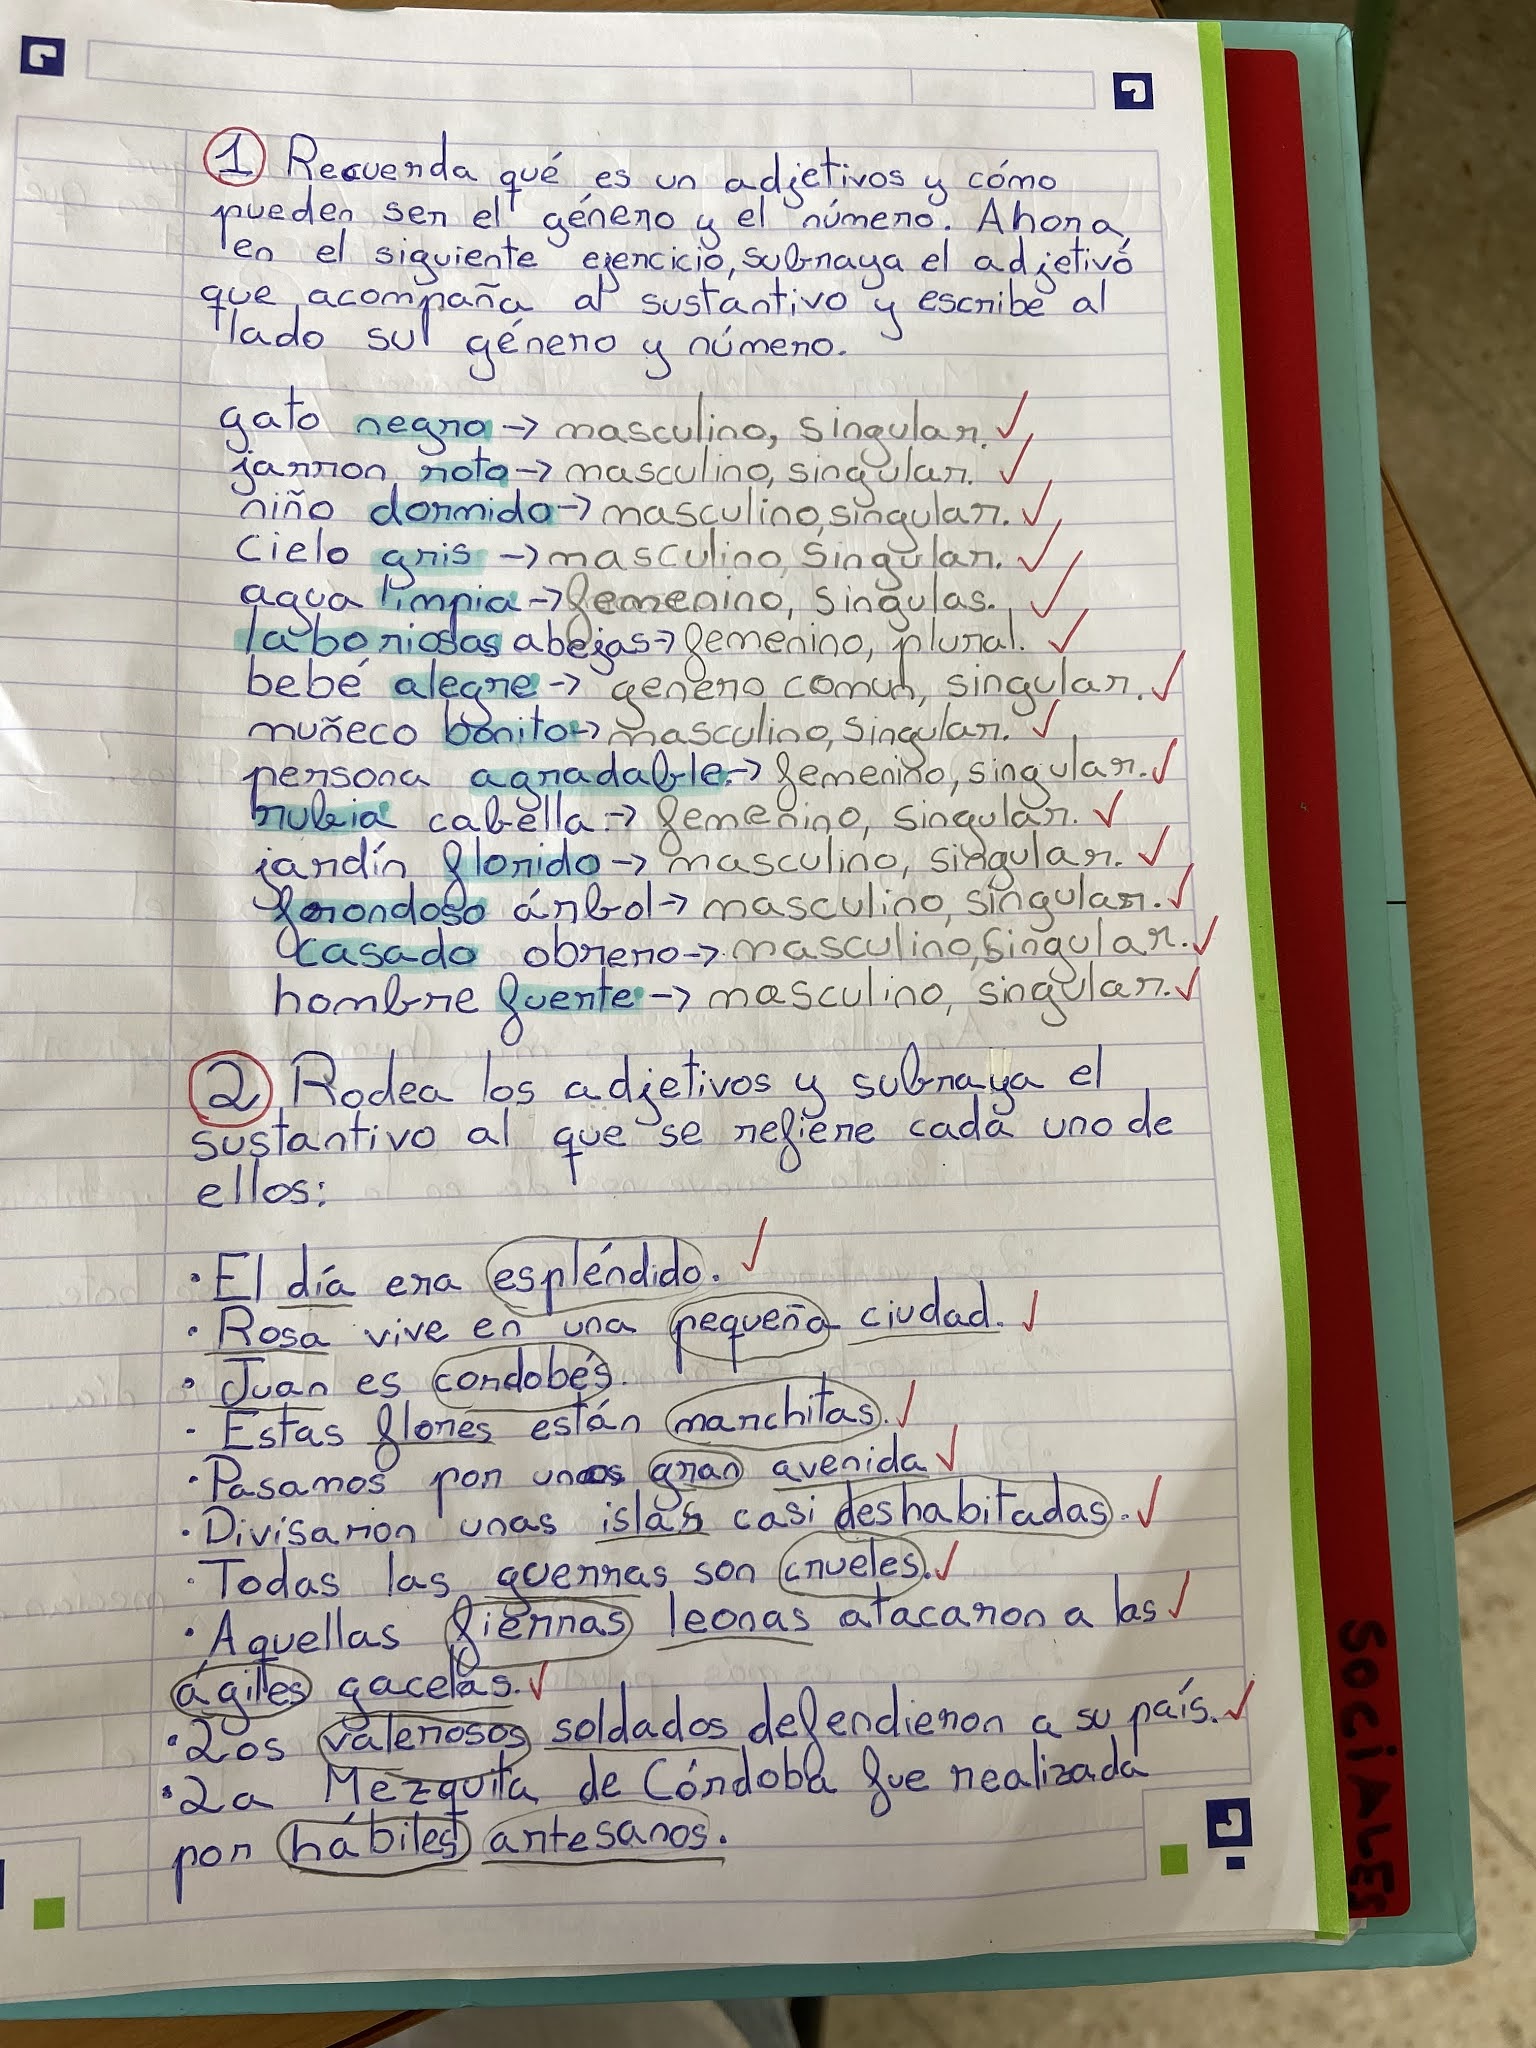 1 Recuerda qué es un adjetivos y cómo
pueden ser el género y el número. Ahora,
en el siguiente ejercicio, subraya el adjetivo
que acompaña al sustantivo y escribe al
lado su género y número.
gato negro → masculino, singular.
jarron roto → masculino, singular.
niño dormido → masculino, singular.
Cielo gris → masculino, singular.
agua limpia → femenino, singulas.
laboriosas abejas → femenino, plural.
bebé alegre → genero comun, singular.
muñeco bonito → masculino, singular.
persona agradable → femenino, singular.
rubia cabella → femenino, singular.
jardín florido → masculino, singular.
frondoso árbol → masculino, singular.
casado obrero → masculino, singular.
hombre fuerte → masculino, singular.
2 Rodea los adjetivos y subraya el
sustantivo al que se refiere cada uno de
ellos:
• El día era espléndido.
• Rosa vive en una pequeña ciudad.
• Juan es cordobés.
- Estas flores están marchitas.
• Pasamos por gran avenida
• Divisaron unas islas casi deshabitadas.
• Todas las guerras son crueles.
• Aquellas fierras leonas atacaron a las
ágiles gacelas.
• Los valerosos soldados defendieron a su país.
• La Mezquita de Córdoba fue realizada
por hábiles artesanos.
SOCIALES